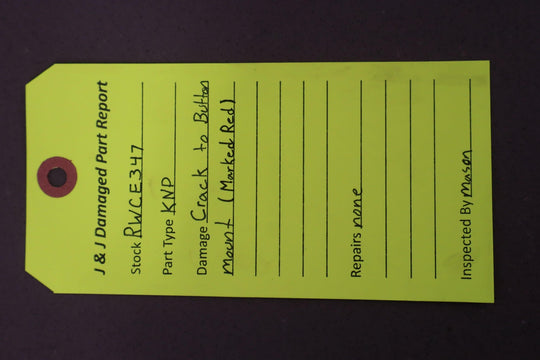 J & J Damaged Part Report
Stock RWCE347
Part Type KNP
Damage Crack to Button
mount (Marked Red)
Repairs none
Inspected By Mason